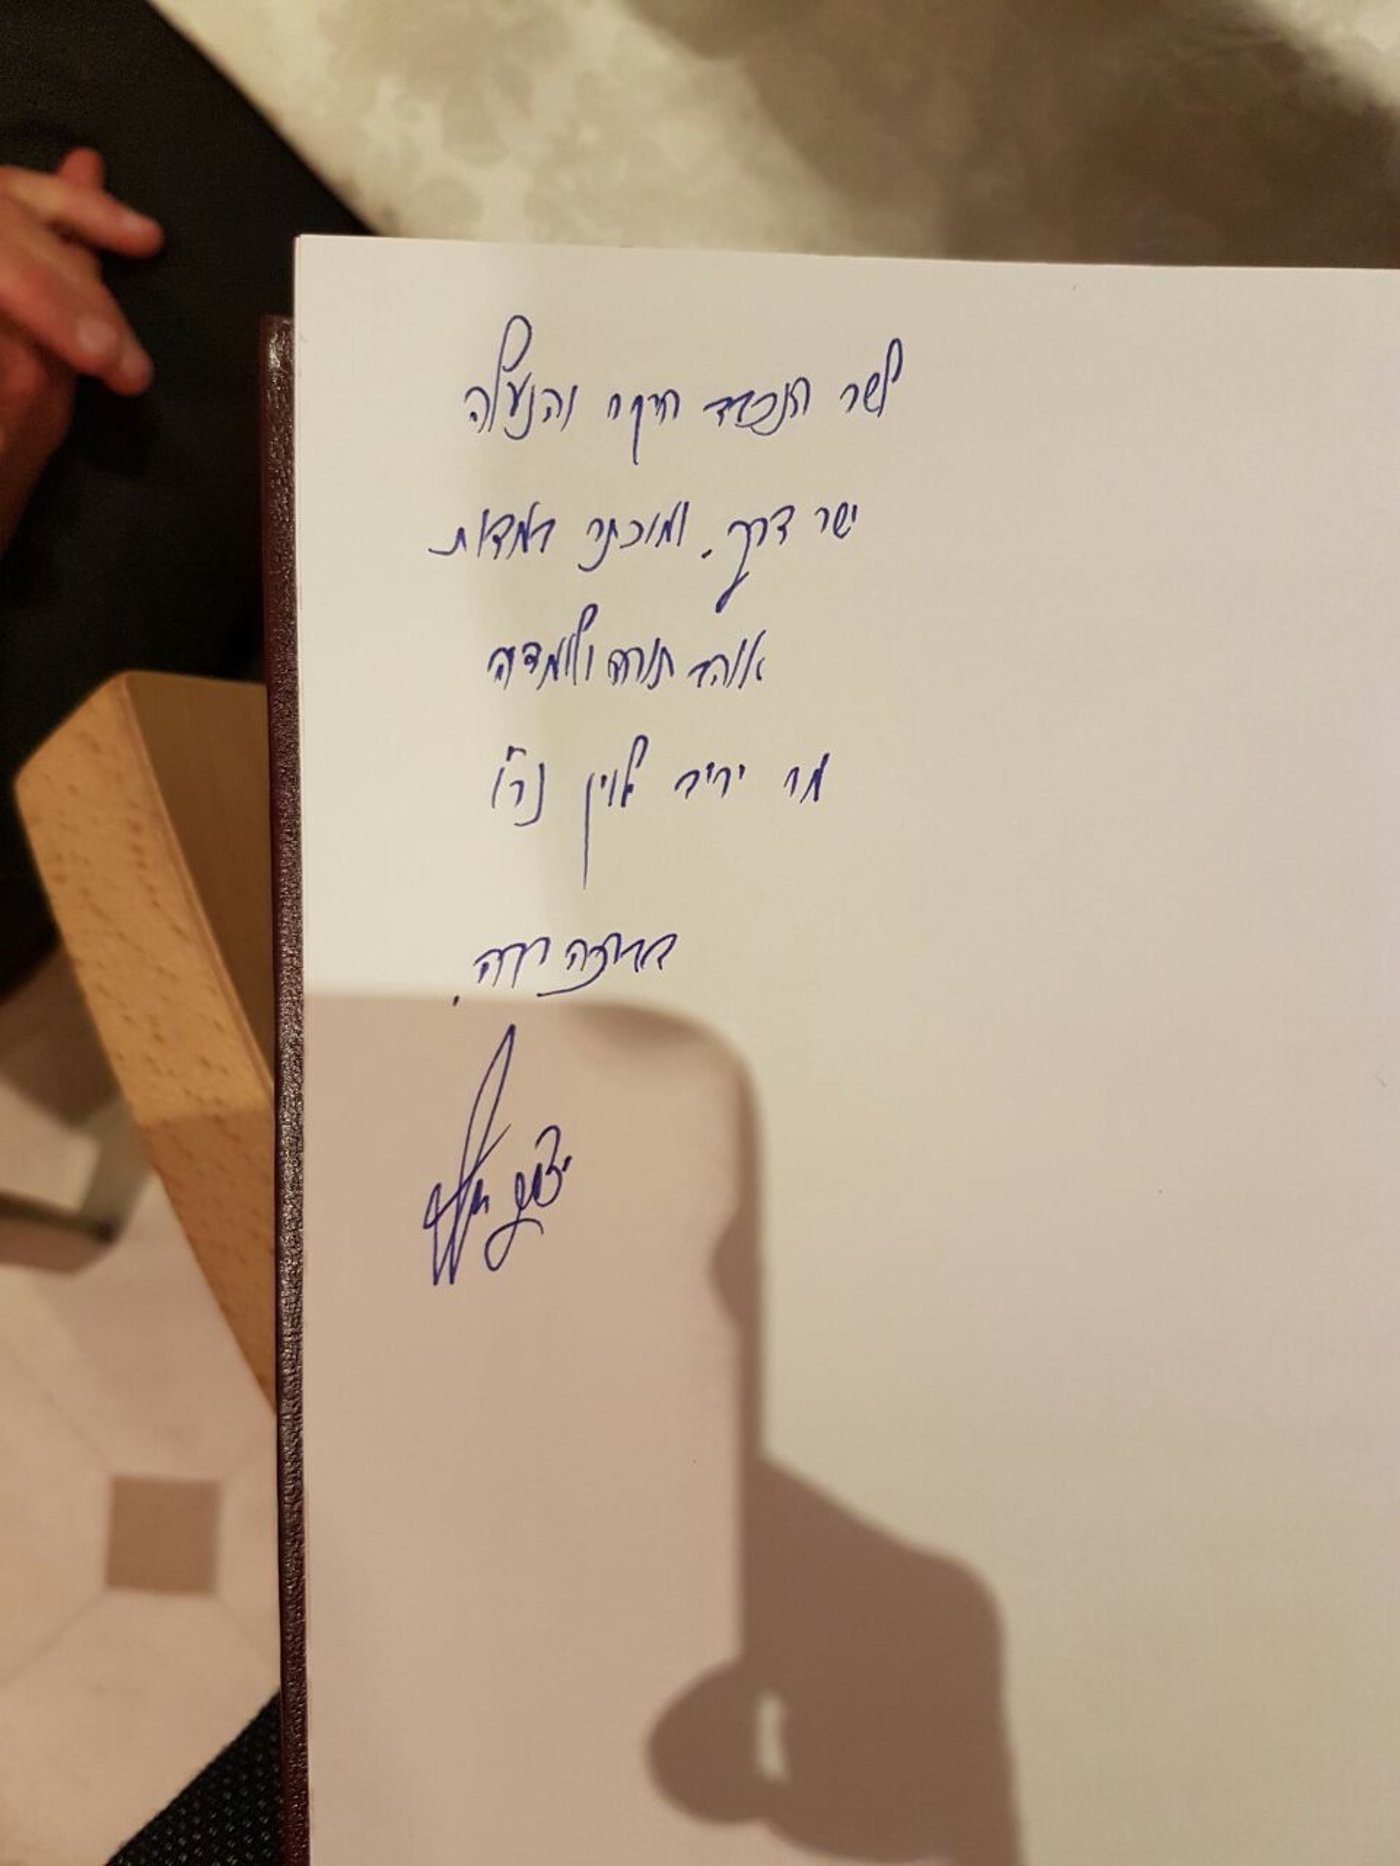 לשר הנכבד היקר והנעלה
ישר דרך. ומוכתר במדות
אוהב תורה ולומדיה
מר יריב לוין נר"ו
בברכה רבה.
יצחק יוסף